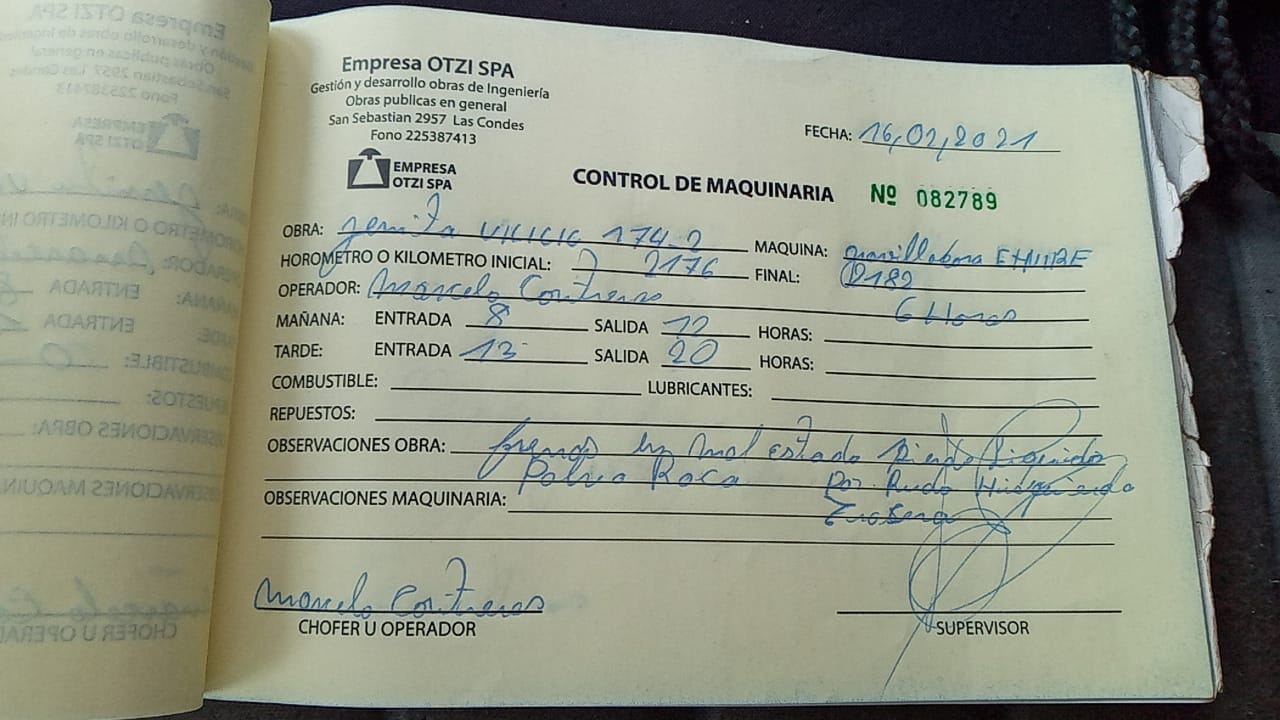 Empresa OTZI SPA
Gestión y desarrollo obras de Ingeniería
Obras publicas en general
San Sebastian 2957 Las Condes
Fono 225387413
EMPRESA
OTZI SPA
FECHA: 16,02,2021
CONTROL DE MAQUINARIA Nº 082789
OBRA: 174-2 MAQUINA:
HOROMETRO O KILOMETRO INICIAL: 2176 FINAL: 2182
OPERADOR: Marcelo Contreras 6 Horas
MAÑANA: ENTRADA 8 SALIDA 12 HORAS:
TARDE: ENTRADA 13 SALIDA 20 HORAS:
COMBUSTIBLE: LUBRICANTES:
REPUESTOS:
OBSERVACIONES OBRA: frenos en mal estado
Polvo Roca Por Rudo
OBSERVACIONES MAQUINARIA:
Marcelo Contreras
CHOFER U OPERADOR
SUPERVISOR